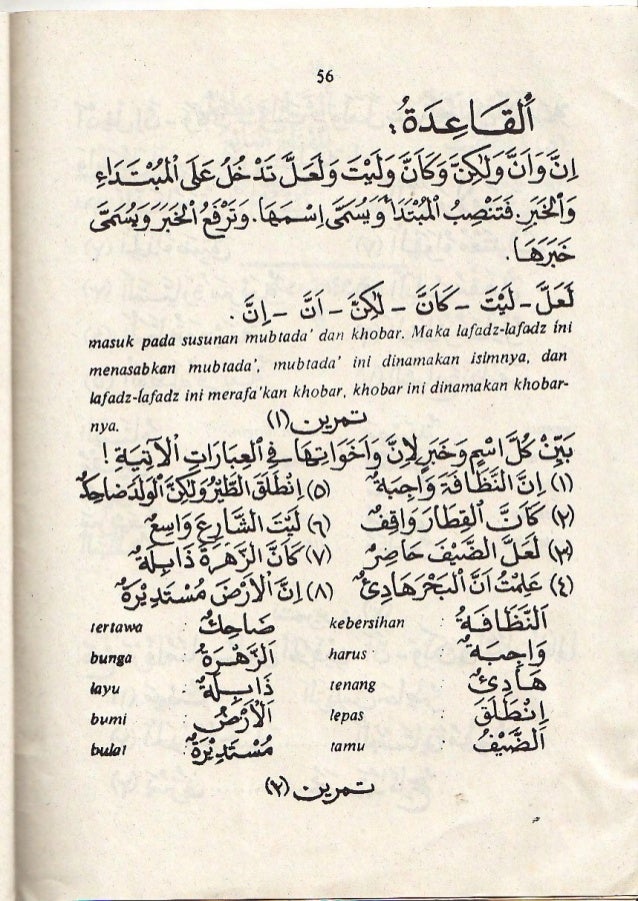 56
اَلْقَاعِدَةُ :
اِنَّ وَاَنَّ وَلٰكِنَّ وَكَاَنَّ وَلَيْتَ وَلَعَلَّ تَدْخُلُ عَلَى الْمُبْتَدَاءِ
وَالْخَبَرِ. فَتَنْصِبُ الْمُبْتَدَاَ وَيُسَمَّى اِسْمَهَا. وَتَرْفَعُ الْخَبَرَ وَيُسَمَّى
خَبَرَهَا.
لَعَلَّ - لَيْتَ - كَانَّ - لٰكِنَّ - اَنَّ - اِنَّ .
masuk pada susunan mubtada' dan khobar. Maka lafadz-lafadz ini
menasabkan mubtada', mubtada' ini dinamakan isimnya, dan
lafadz-lafadz ini merafa'kan khobar, khobar ini dinamakan khobar-
nya.
تمرين (١)
بَيِّنْ كُلَّ اسْمٍ وَخَبَرٍ لِاِنَّ وَاَخَوَاتِهَا فِي الْعِبَارَاتِ الْآتِيَةِ !
(١) اِنَّ النَّظَافَةَ وَاجِبَةٌ (٥) اِنْطَلَقَ الطَّيْرُ وَلٰكِنَّ الْوَلَدَ ضَاحِكٌ
(٢) كَاَنَّ الْقِطَارَ وَاقِفٌ (٦) لَيْتَ الشَّارِعَ وَاسِعٌ
(٣) لَعَلَّ الضَّيْفَ حَاضِرٌ (٧) كَانَّ الزَّهْرَةَ ذَابِلَةٌ
(٤) عَلِمْتُ اَنَّ الْبَحْرَ هَادِئٌ (٨) اِنَّ الْاَرْضَ مُسْتَدِيْرَةٌ
اَلنَّظَافَةُ : kebersihan ضَاحِكٌ : tertawa
وَاجِبَةٌ : harus اَلزَّهْرَةُ : bunga
هَادِئٌ : tenang ذَابِلَةٌ : layu
اِنْطَلَقَ : lepas اَلْاَرْضُ : bumi
اَلضَّيْفُ : tamu مُسْتَدِيْرَةٌ : bulat
تمرين (٢)